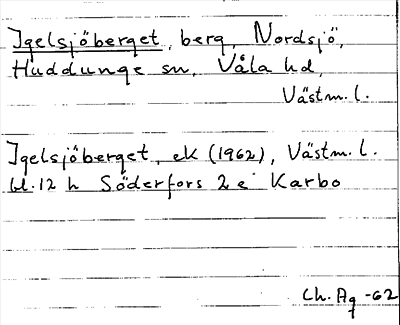 Igelsjöberget, berg, Nordsjö,
Huddunge sn, Våla hd,
Västm. l.
Igelsjöberget, ek (1962), Västm. l.
bl. 12 h Söderfors 2 e Karbo
Ch. Ag -62